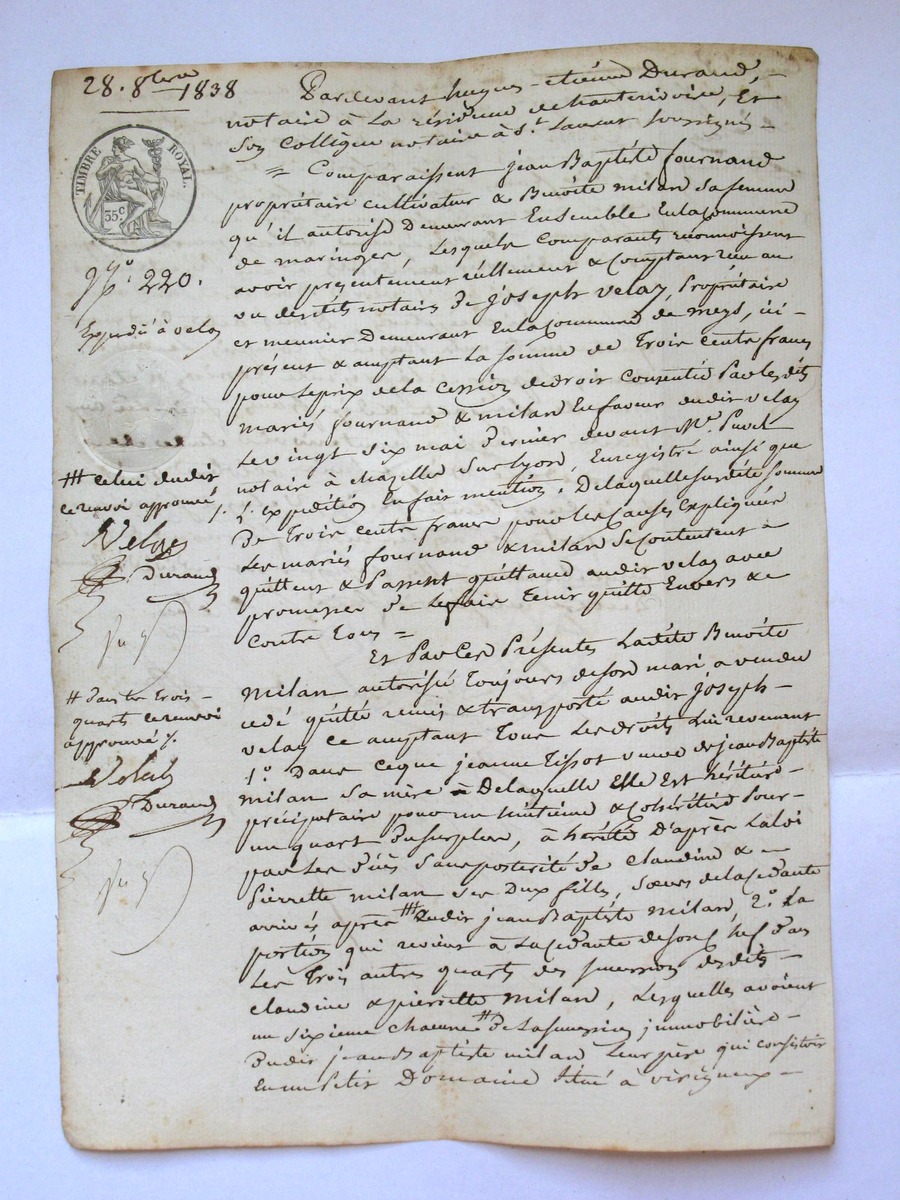 28. 8bre 1838
TIMBRE ROYAL.
35c
No. 220.
Expédié à velay
Pardevant hugues-etienne Durand, -
notaire à La résidence de hauterivoire, Et
son Collègue notaire à St. Laurent soussignés -
= Comparaissent jean Baptiste fournand
propriétaire cultivateur & Benoîte milan sa femme
qu'il autorise Demeurant Ensemble En la commune
de maringes, Lesquels Comparants reconnoissent
avoir présentement réellement & Comptant reçu au
vu desdits notaires De joseph velay, Propriétaire
et meunier Demeurant En la Commune de meys, ici -
présent & acceptant La somme de Trois cents francs
pour le prix de la Cession de droit Consentie Par lesdits
mariés fournand & milan En faveur dudit velay
Le vingt six mai dernier devant Me.
notaire à chazelle sur Lyon, Enregistré ainsi que
L'expédition En fait mention. De laquelle susdite somme
De Trois cents francs pour les Causes Expliquées
Les mariés fournand & milan se Contentent -
quittent & Passent quittance audit velay avec
promesse De Le faire Tenir quitte Envers &
Contre Tous =
Et Par Ces Présentes Ladite Benoîte
milan autorisée Toujours de son mari a vendu
cédé quitté remis & transporté audit joseph -
velay ce acceptant Tous Les droits Lui revenant
1°. Dans ce que jeanne Tissot veuve de jean Baptiste
milan sa mère De laquelle Elle Est héritière -
précipuaire pour un huitième & Cohéritière Pour -
un quart Du surplus, à hérité D'après La loi
par les Décès Sans postérité De claudine & -
Pierrette milan ses Deux filles, Sœurs de la cédante
arrivés après # Ledit jean Baptiste milan, 2°. La
portion qui revient à La cédante de son chef dans
Les Trois autres quarts des successions desdites -
claudine & pierrette milan, Lesquelles avoient
un sixième chacune # De la succession immobilière -
Dudit jean Baptiste milan Leur père qui consistoit
En un Petit Domaine situé à virigneux -
# celui dudit
ce renvoi approuvé /.
Velay
Durand
# Dans les trois -
quarts ce renvoi
approuvé /.
Velay
Durand